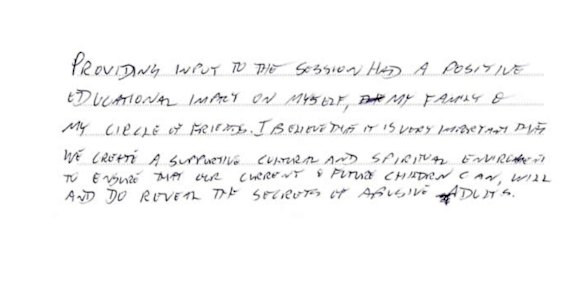 PROVIDING INPUT TO THE SESSION HAD A POSITIVE
EDUCATIONAL IMPACT ON MYSELF, MY FAMILY &
MY CIRCLE OF FRIENDS. I BELIEVE THAT IT IS VERY IMPORTANT THAT
WE CREATE A SUPPORTIVE CULTURAL AND SPIRITUAL ENVIRONMENT
TO ENSURE THAT OUR CURRENT & FUTURE CHILDREN CAN, WILL
AND DO REVEAL THE SECRETS OF ABUSIVE ADULTS.